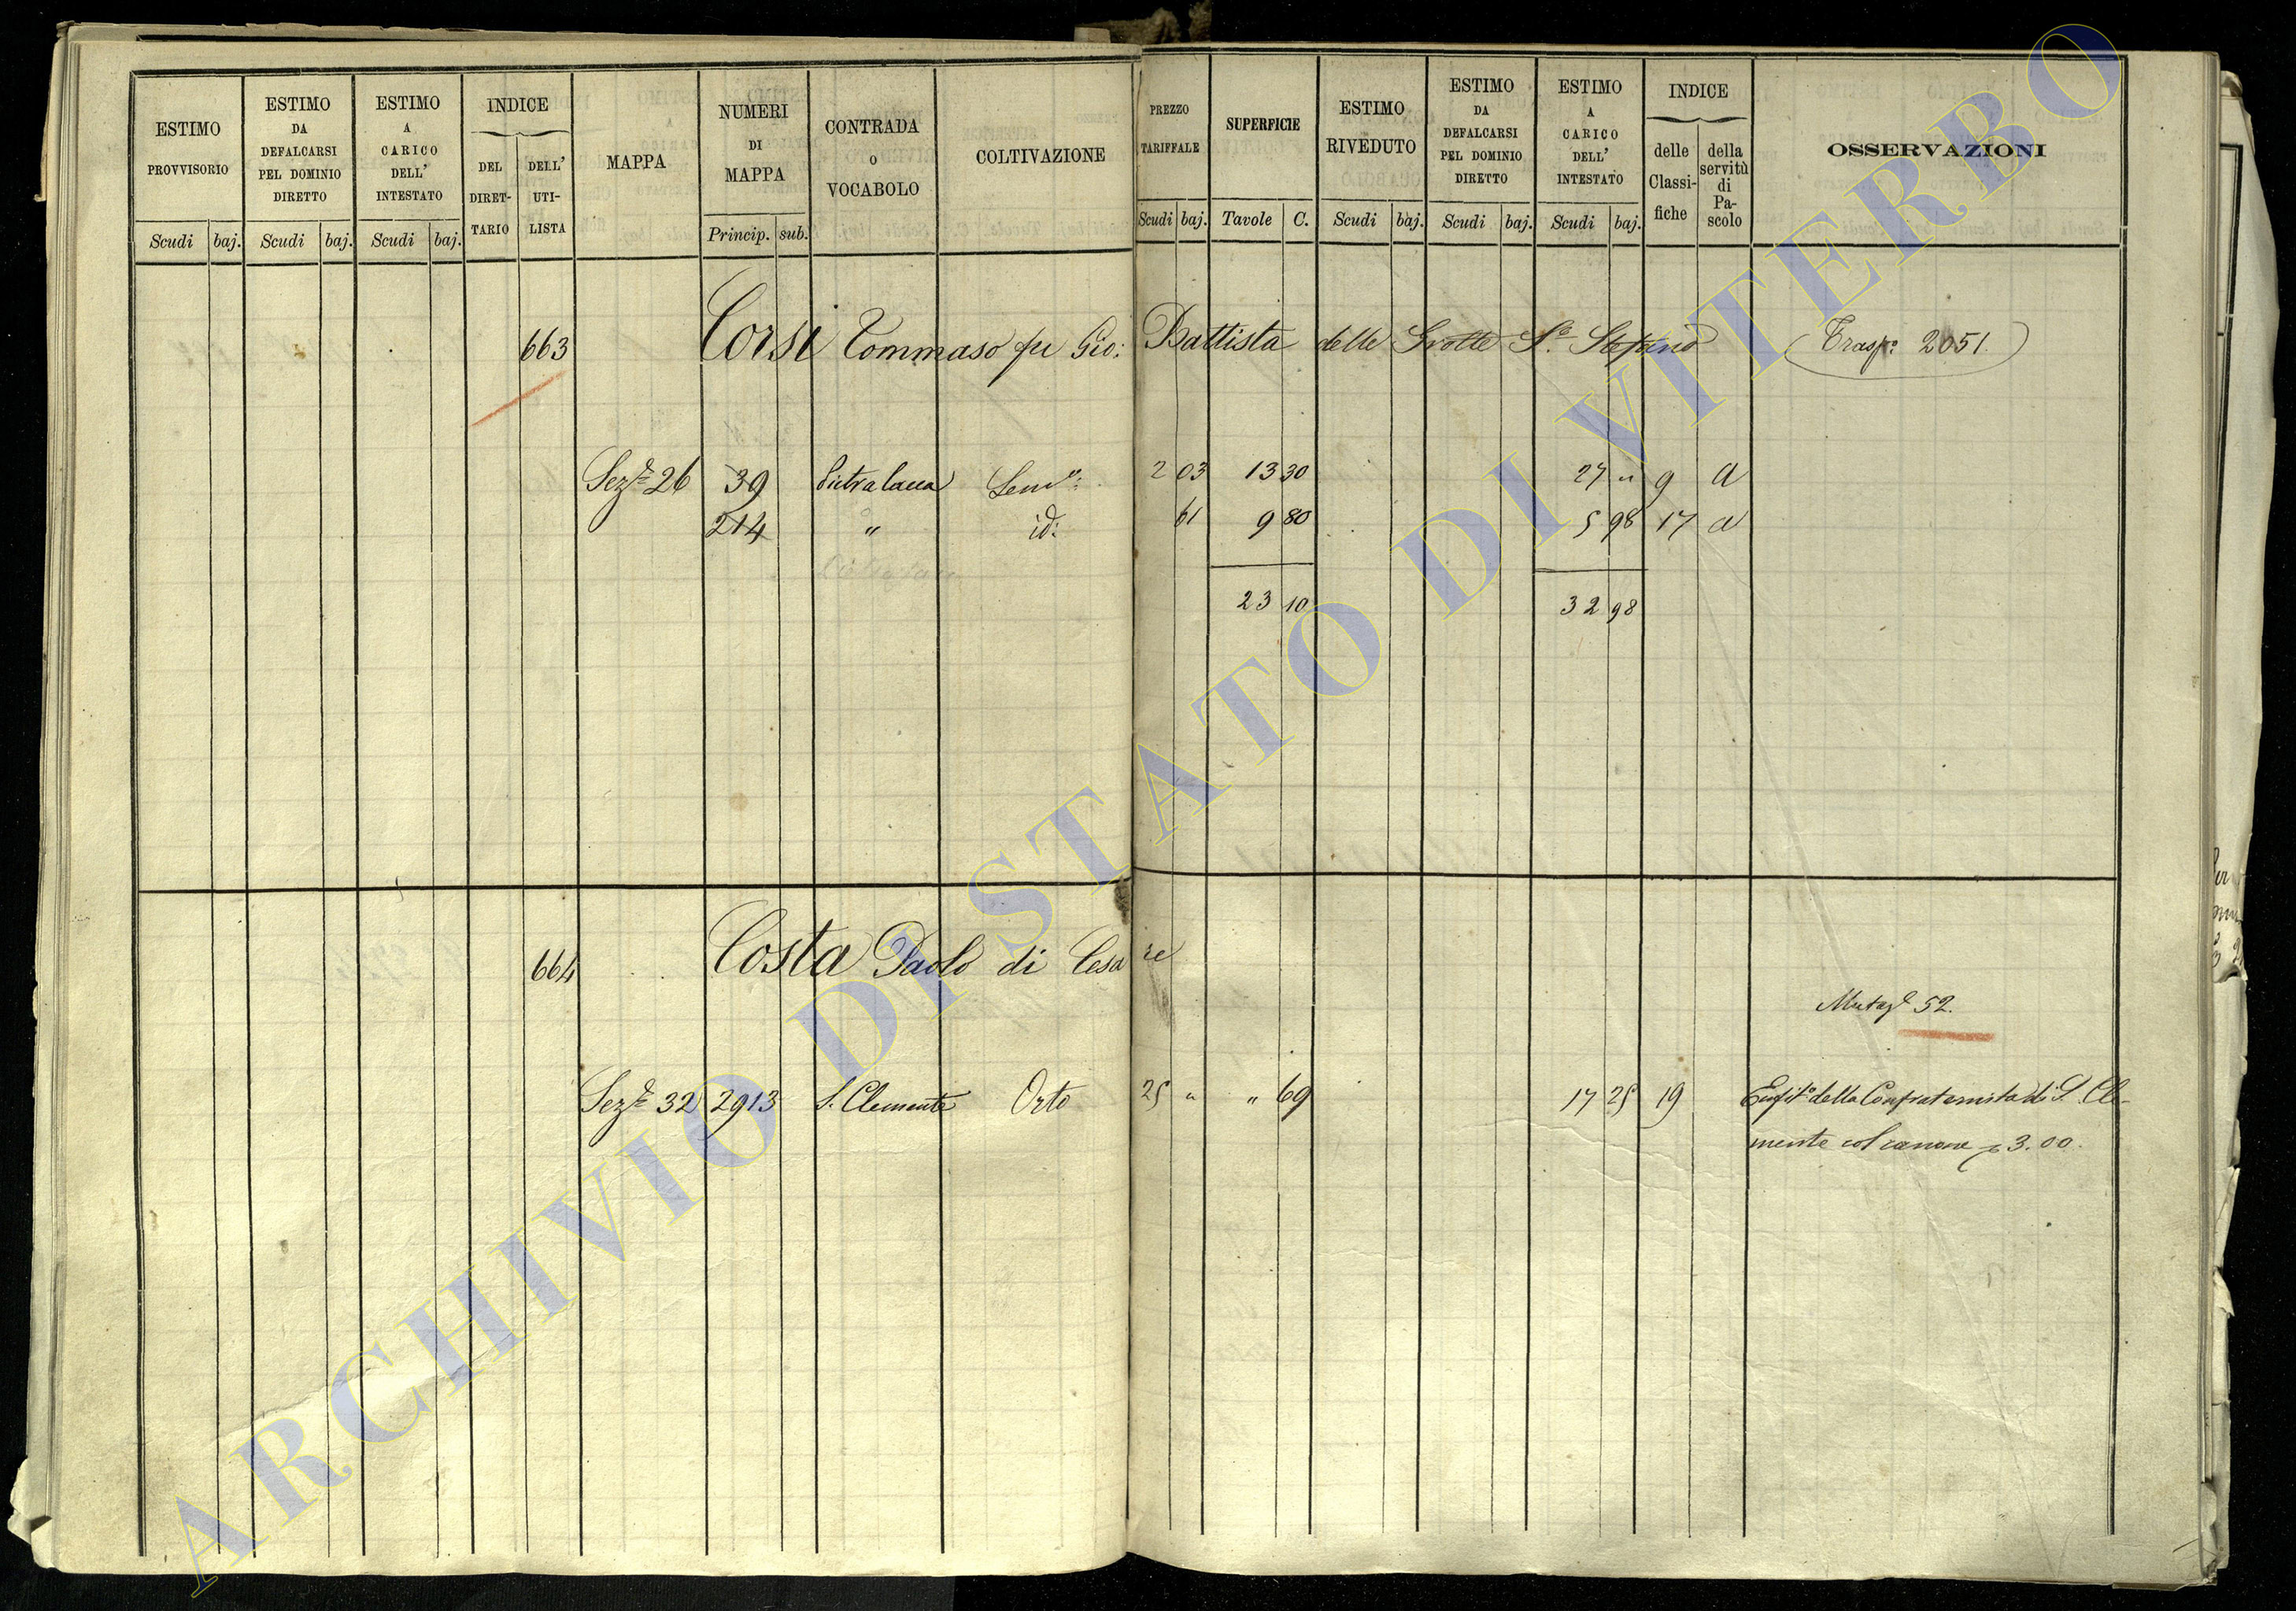 ESTIMO PROVVISORIO
Scudi baj.
ESTIMO DA DEFALCARSI PEL DOMINIO DIRETTO
Scudi baj.
ESTIMO A CARICO DELL' INTESTATO
Scudi baj.
INDICE
DEL DIRET-TARIO
DELL' UTI-LISTA
MAPPA
NUMERI DI MAPPA
Princip. sub.
CONTRADA O VOCABOLO
COLTIVAZIONE
PREZZO TARIFFALE
Scudi baj.
SUPERFICIE
Tavole C.
ESTIMO RIVEDUTO
Scudi baj.
ESTIMO DA DEFALCARSI PEL DOMINIO DIRETTO
Scudi baj.
ESTIMO A CARICO DELL' INTESTATO
Scudi baj.
INDICE
delle Classi-fiche
della servitù di Pa-scolo
OSSERVAZIONI
663 Corsi Tommaso fu Gio: Battista delle Grotte S.o Stefano (Trasp.o 2051.)
Sez.e 26 39 Pietralacca Sem.o: 2 03 13 30 27 " 9 a
214 " id: 61 9 80 5 98 17 a
23 10 32 98
664 Costa Paolo di Cesare
Mutaz.e 52.
Sez.e 32 2913 S. Clemente Orto 25 " " 69 17 25 19 Enfit.o della Confraternita di S. Cle-
mente col canone 3.00.
ARCHIVIO DI STATO DI VITERBO